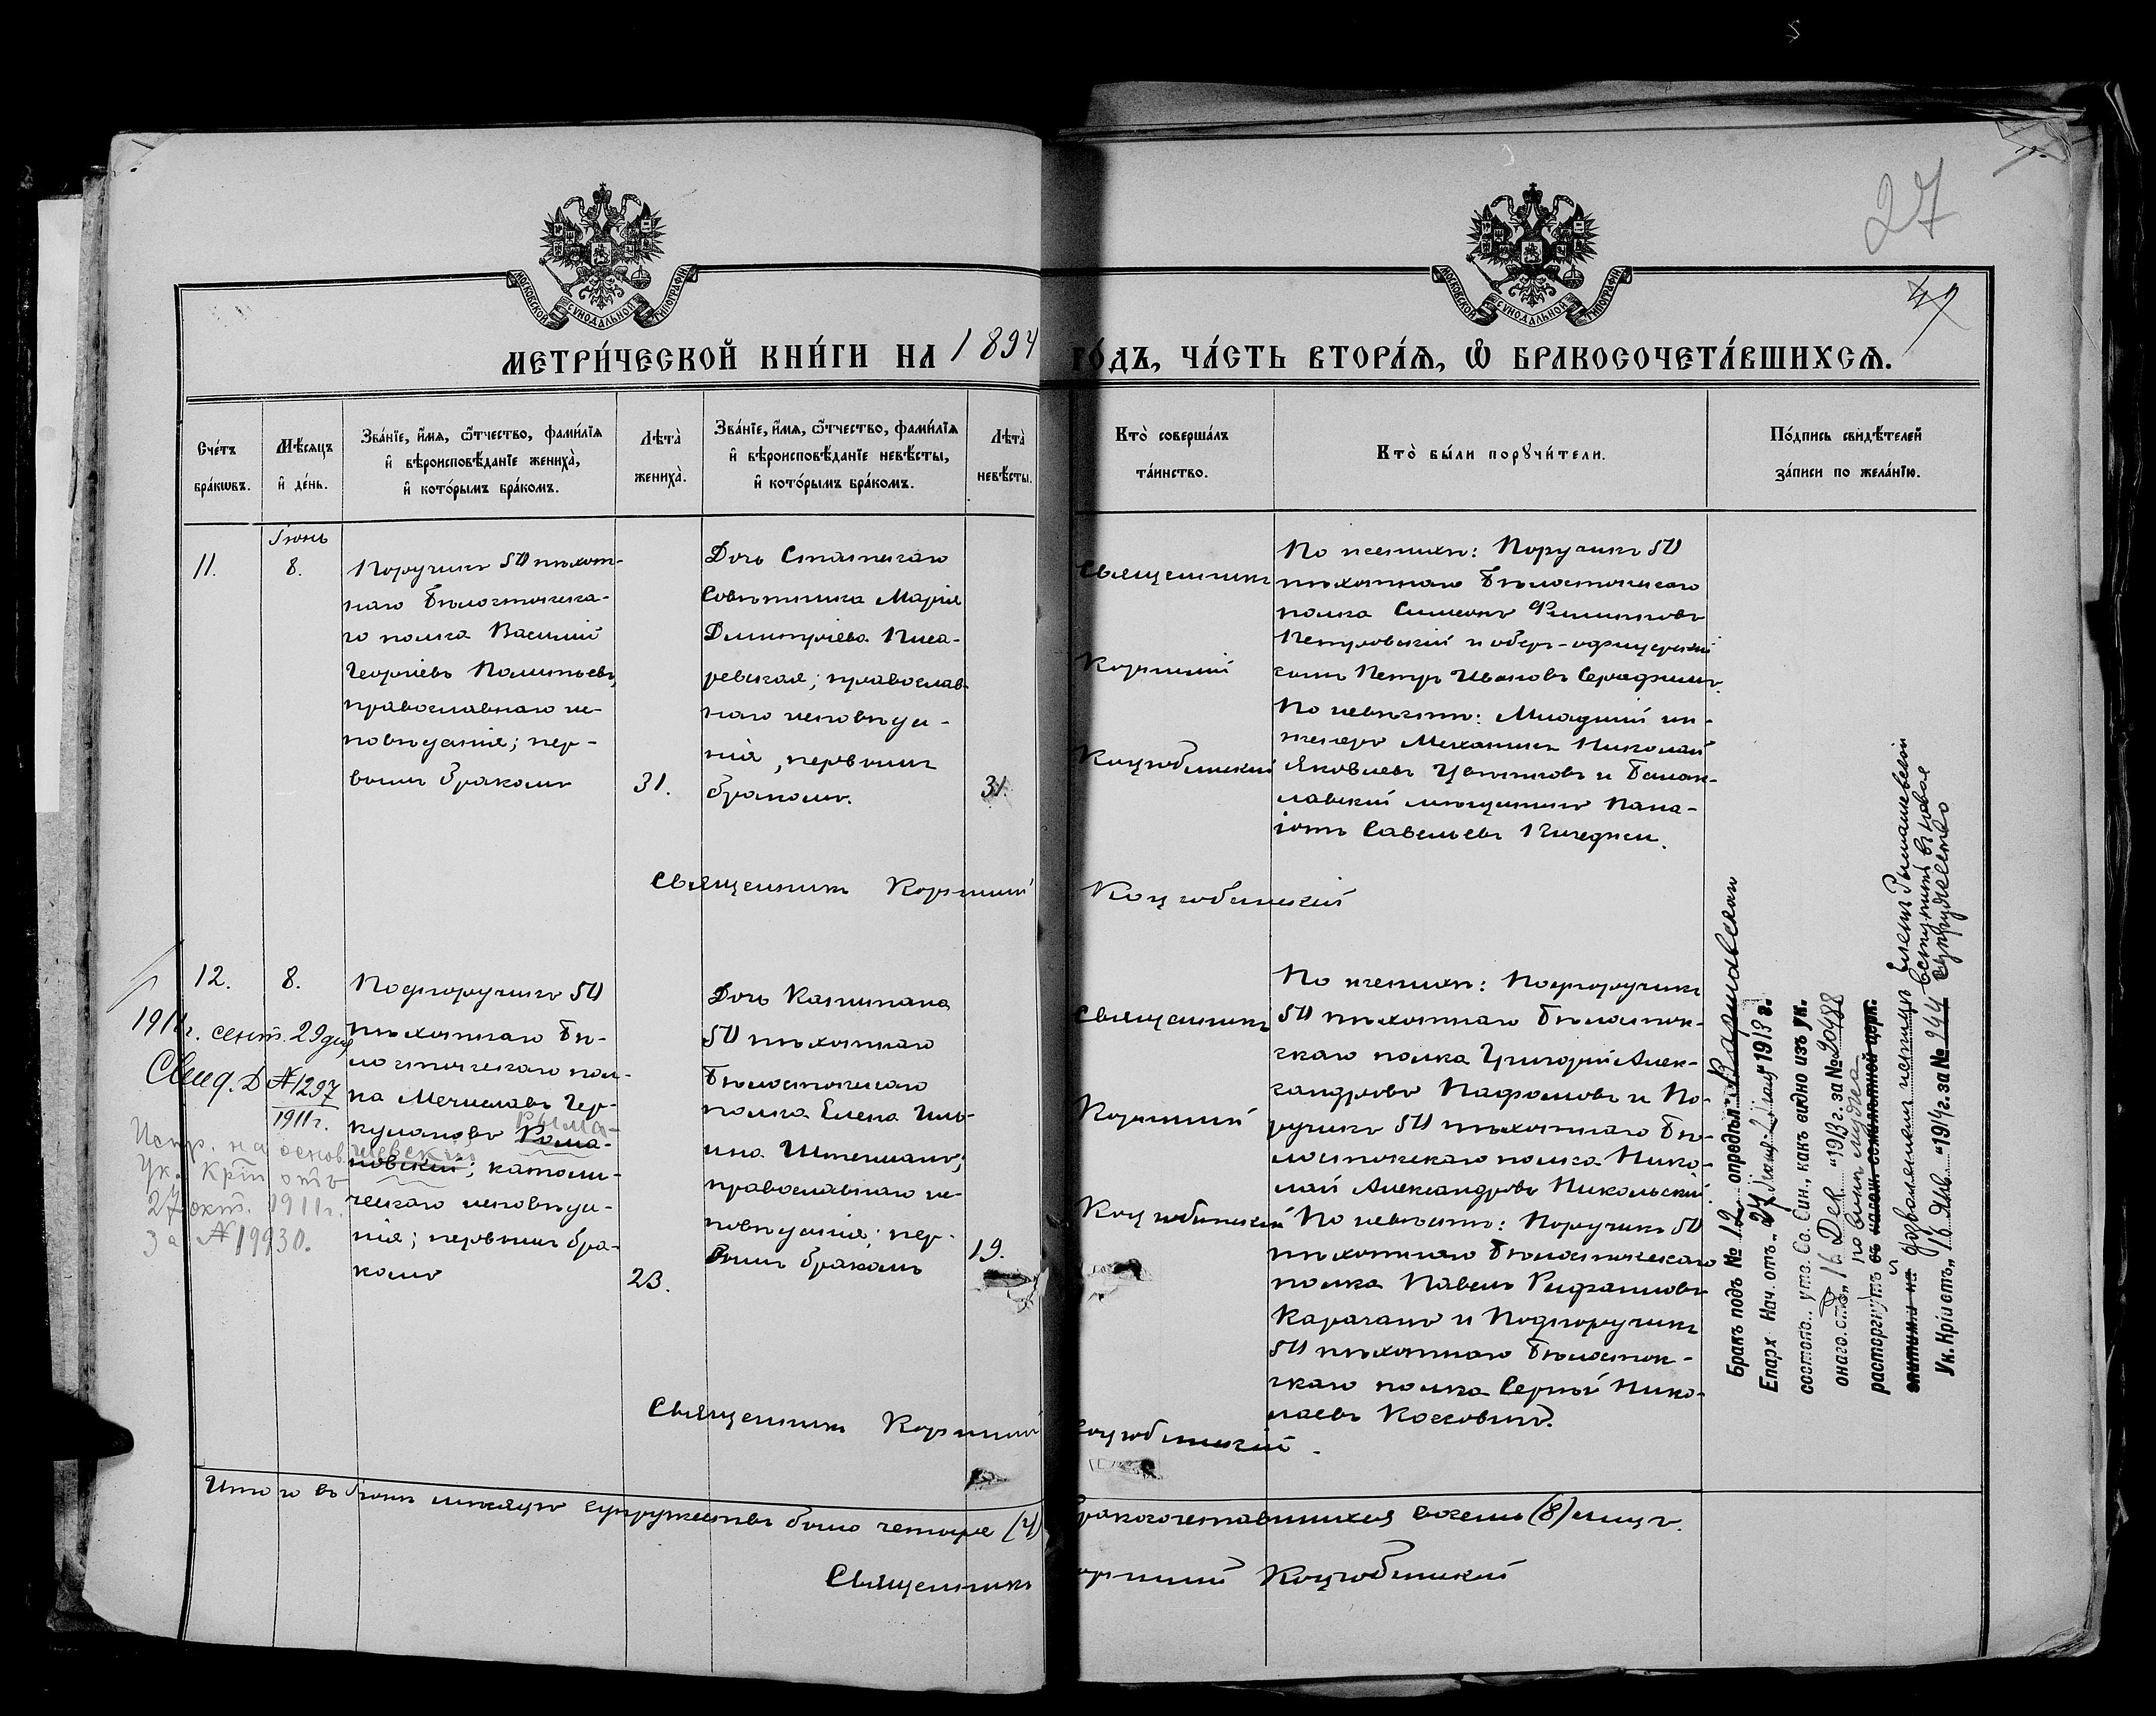 27
47
МОСКОВСКОЙ СУНОДАЛЬНОЙ ТИПОГРАФІИ
МОСКОВСКОЙ СУНОДАЛЬНОЙ ТИПОГРАФІИ
МЕТРИ́ЧЕСКОЙ КНИ́ГИ НА 1894 ГО́ДЪ, ЧА́СТЬ ВТОРА́Ѧ, Ѽ БРАКОСОЧЕТА́ВШИХСѦ.
Сче́тъ
бра́кѡвъ.
Мѣ́сяцъ
и҆ де́нь.
Зва́нїе, и҆́мя, ѻ҆́тчество, фами́лїя
и҆ вѣроисповѣ́данїе жениха̀,
и҆ кото́рымъ бра́комъ.
Лѣта̀
жениха̀.
Зва́нїе, и҆́мя, ѻ҆́тчество, фами́лїя
и҆ вѣроисповѣ́данїе невѣ́сты,
и҆ кото́рымъ бра́комъ.
Лѣта̀
невѣ́сты.
Кто̀ соверша́лъ
та́инство.
Кто̀ бы́ли порꙋчи́тели.
По́дпись свидѣ́телей
за́писи по жела́нїю.
11.
Іюнь
8.
Поручикъ 50 пѣхот-
наго Бѣлостокска-
го полка Василій
Георгіевъ
православнаго ис-
повѣданія; пер-
вымъ бракомъ
31.
Дочь Статскаго
Совѣтника Марія
Димитріева Писа-
ревская; православ-
наго исповѣда-
нія, первымъ
бракомъ.
31.
Священникъ
Корнилій
Коцюбинскій
По женихѣ: Поручикъ 50
пѣхотнаго Бѣлостокскаго
полка Симеонъ Филиповъ
Петровскій и оберъ-офицерскій
сынъ Петръ Ивановъ Серафимъ.
По невѣстѣ: Младшій ин-
женеръ Механикъ Николай
Яковлевъ Цвѣтковъ и Балак-
лавскій мѣщанинъ Пана-
іотъ Савельевъ
Священникъ Корнилій Коцюбинскій
12.
8.
Подпоручикъ 50
пѣхотнаго Бѣ-
лостокскаго пол-
ка Мечиславъ Гер-
кулановъ Рома-
новскій; католи-
ческаго исповѣда-
нія; первымъ бра-
комъ
23.
Рыма-
шевскій
1911г. сент. 29 дня
Свид. Д №1297
1911г.
Испр. на основ.
Ук. Крiи отъ
27 окт. 1911г.
за №19930.
Дочь Капитана
50 пѣхотнаго
Бѣлостокскаго
полка Елена Иль-
ина Штейманъ;
православнаго ис-
повѣданія; пер-
вымъ бракомъ
19.
Священникъ
Корнилій
Коцюбинскій
По женихѣ: Подпоручикъ
50 пѣхотнаго Бѣлосток-
скаго полка Григорій Алек-
сандровъ Пафомовъ и По-
ручикъ 50 пѣхотнаго Бѣ-
лостокскаго полка Нико-
лай Александровъ Никольскій.
По невѣстѣ: Поручикъ 50
пѣхотнаго Бѣлостокскаго
полка Павелъ
и Подпоручикъ
50 пѣхотнаго Бѣлосток-
скаго полка Сергѣй Нико-
лаевъ
Бракъ подъ № 12 опредѣл. Варшавскаго
Епарх Нач. отъ „27 1913 г.
состояв.. утв. Св. Син., какъ видно изъ ук.
онаго отъ „16 Дек. “1913 г. за № 20488
по винѣ мужа
расторгнутъ съ налож семилѣтней церк.
эпитиміи на и дозволеніемъ истицѣ Еленѣ Рымашевской
вступить въ новое
Ук. Крiи отъ „16 Янв. “1914 г. за № 944 супружество
Священникъ Корнилій Коцюбинскій.
Итого въ Іюнѣ мѣсяцѣ супружествъ было четыре (4) бракосочетавшихся восемь (8) лицъ.
Священникъ Корнилій Коцюбинскій